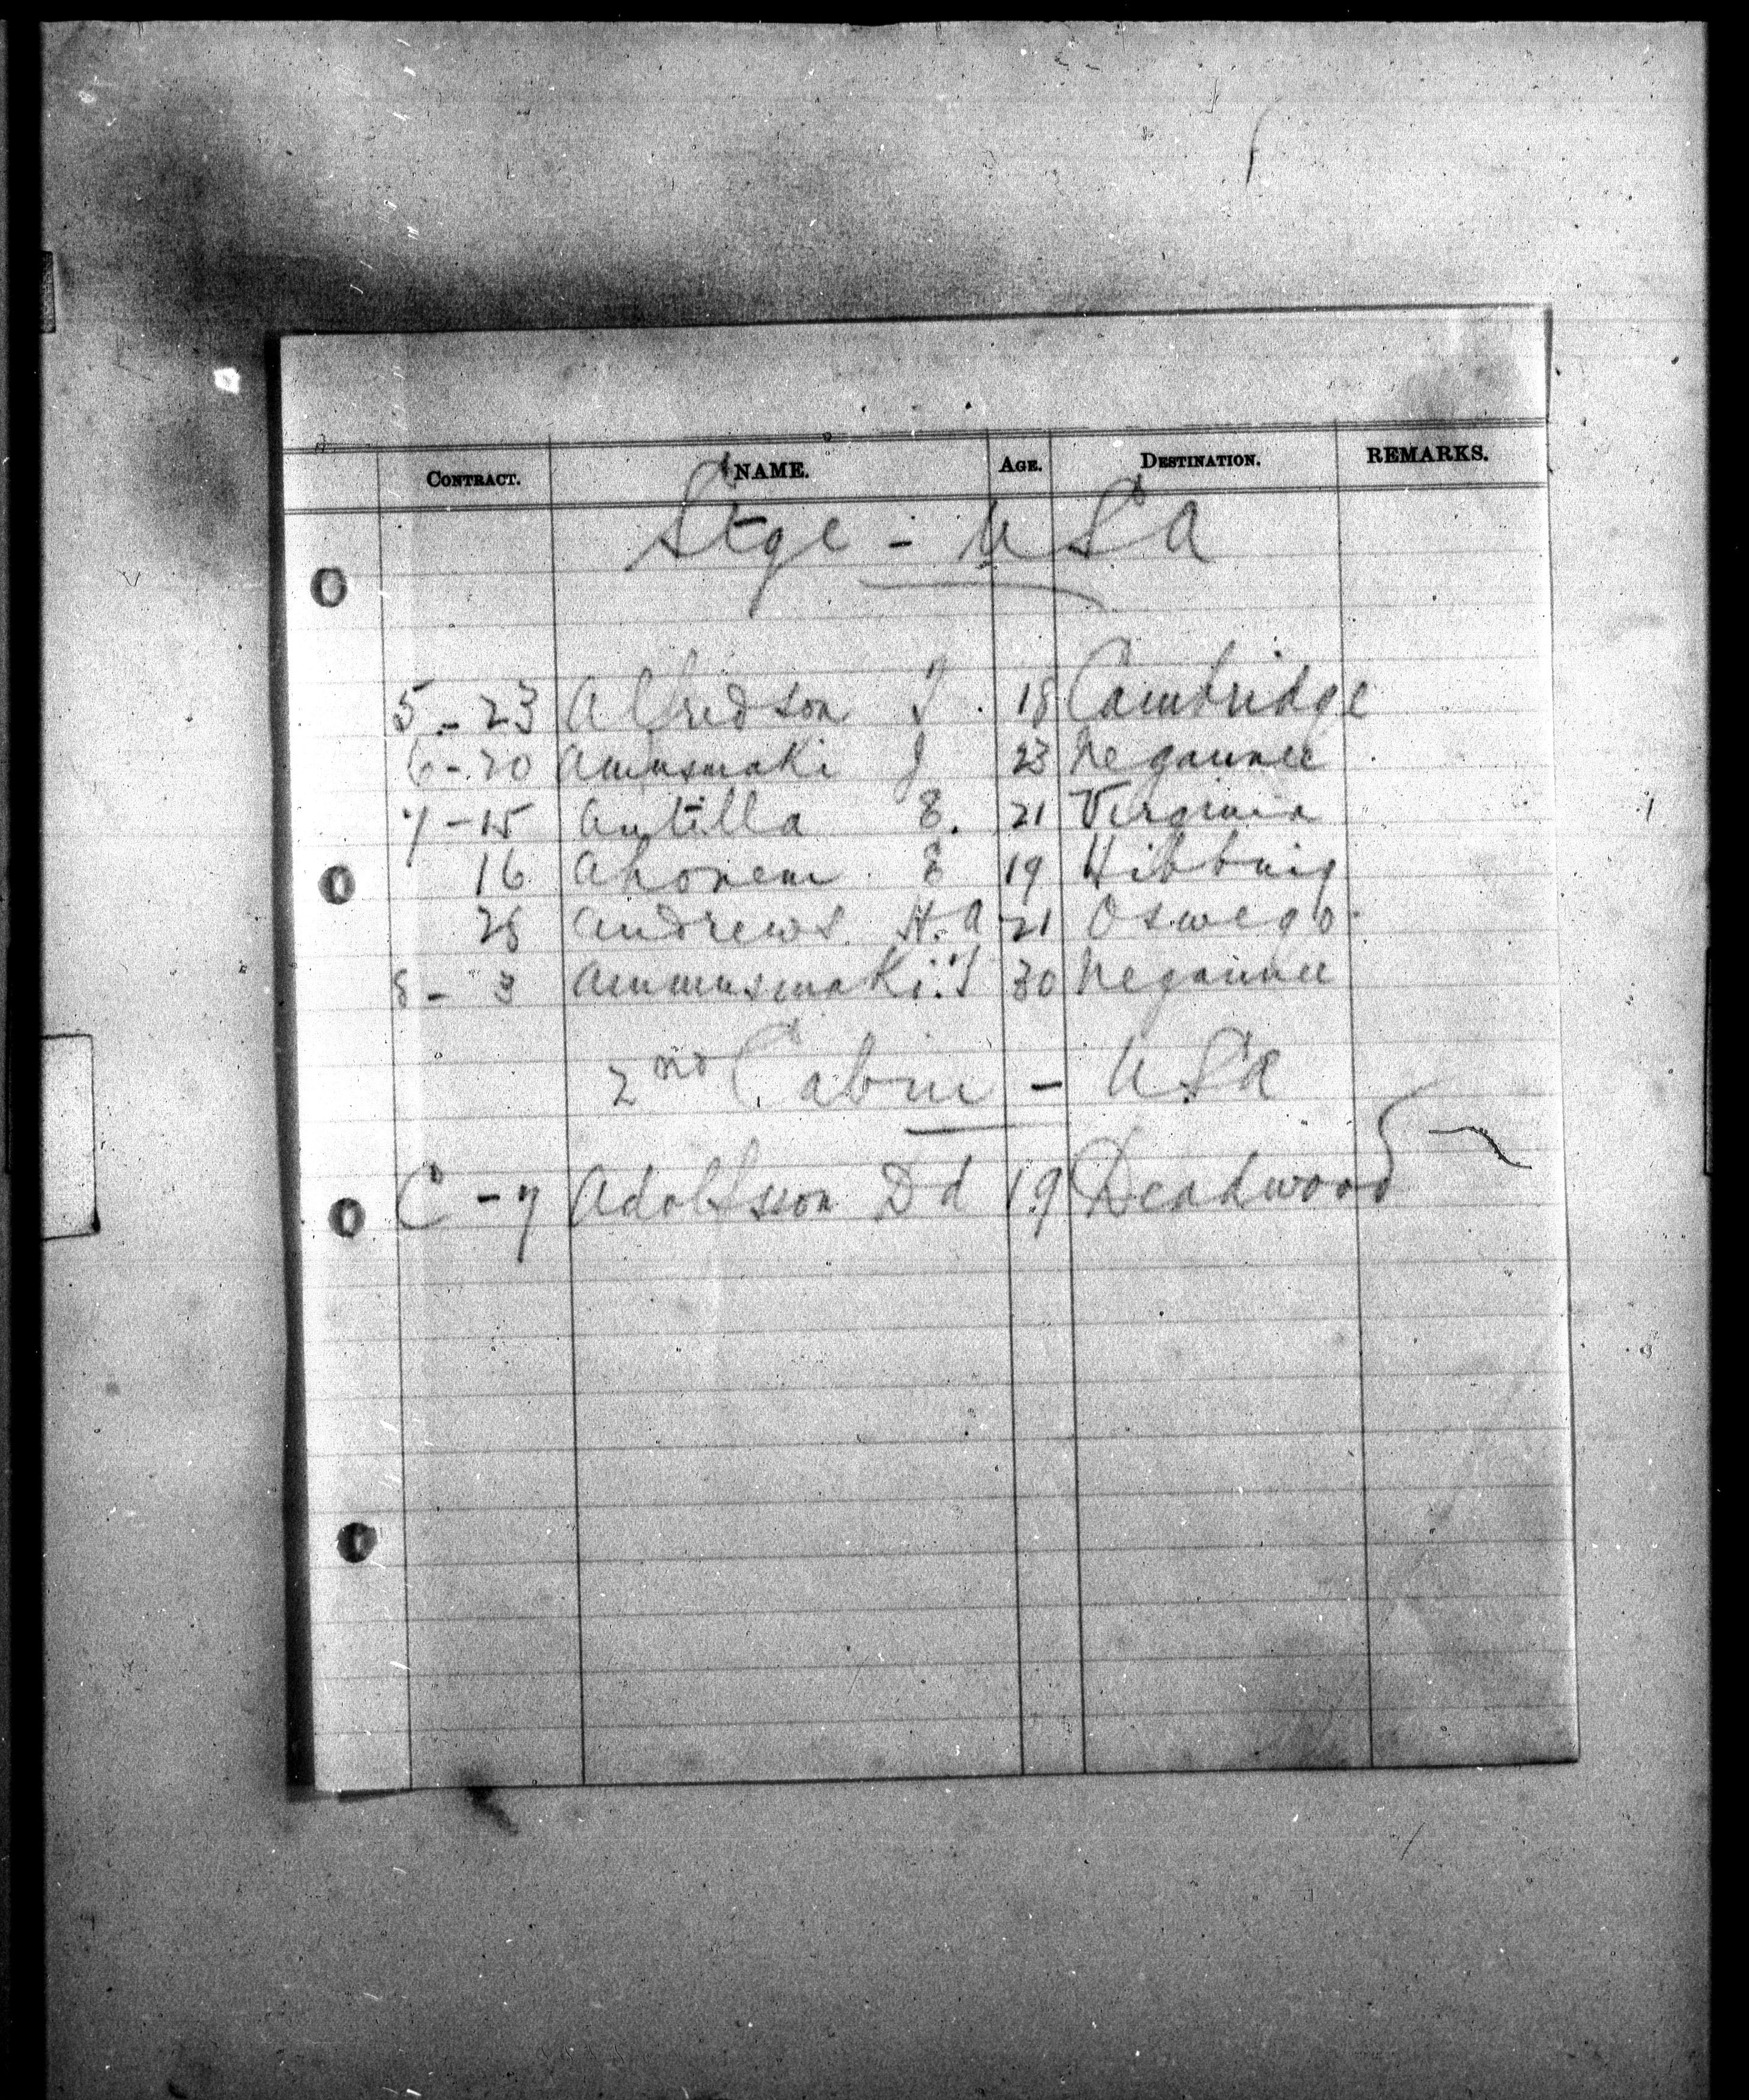 CONTRACT. NAME. AGE. DESTINATION. REMARKS.
Stge - USA
5 - 23 Alfredson I. 18 Cambridge
6 - 20 Amusmaki J 23 Negaunee
7 - 15 Antilla E. 21 Virginia
16 Ahonem E 19 Hibbing
28 Andrews H. A 21 Oswego
8 - 3 Ammusmaki. I 30 Negaunee
2nd Cabin - USA
C - 7 Adolfsson Dd 19 Deadwood